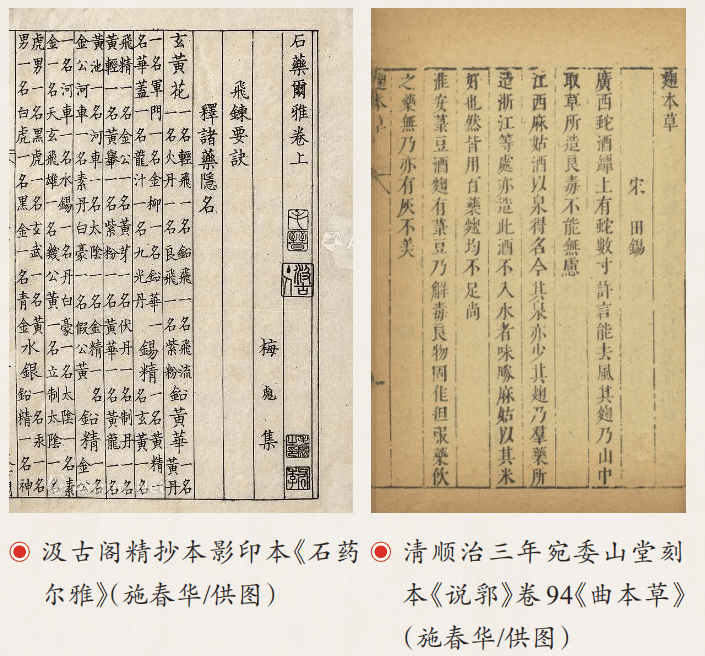 石藥爾雅卷上
梅彪集
飛鍊要訣
釋諸藥隱名
玄黃花 一名輕飛一名鉛飛一名飛流
一名火丹一名良飛一名紫粉 鉛黃華 一名黃丹
一名軍門一名金柳一名鉛華一
名華蓋一名龍汁一名九光丹 錫精 一名黃精一
名玄黃一名
飛精一名金公一名黃芽一名伏丹一名制丹一名
黃輕一名黃轝一名紫粉一名黃華一名黃龍一名
黃池一名河車一名太陰一名金精一名
金公河車一名素丹白豪一名假公黃 鉛精 一名金公
一名河車一名水錫一名丹白豪一名太陰一名素
金一名天玄飛雄一名幾公黃一名立制太陰一名
虎男一名黑虎一名玄武一名黃
男一名白虎一名黑金一名青金 水銀 一名汞一名
鉛精一名神
麴本草
宋 田錫
廣西蛇酒罈上有蛇數寸許言能去風其麴乃山中
取草所造良毒不能無慮
江西麻姑酒以泉得名今其泉亦少其麴乃羣藥所
造浙江等處亦造此酒不入水者味勝麻姑以其米
好也然皆用百藥麴均不足尚
淮安菉豆酒麴有菉豆乃解毒良物固佳但張藥飲
之藥無乃亦有灰不美
麴本草
汲古阁精抄本影印本《石药
尔雅》(施春华/供图)
清顺治三年宛委山堂刻
本《说郛》卷94《曲本草》
(施春华/供图)